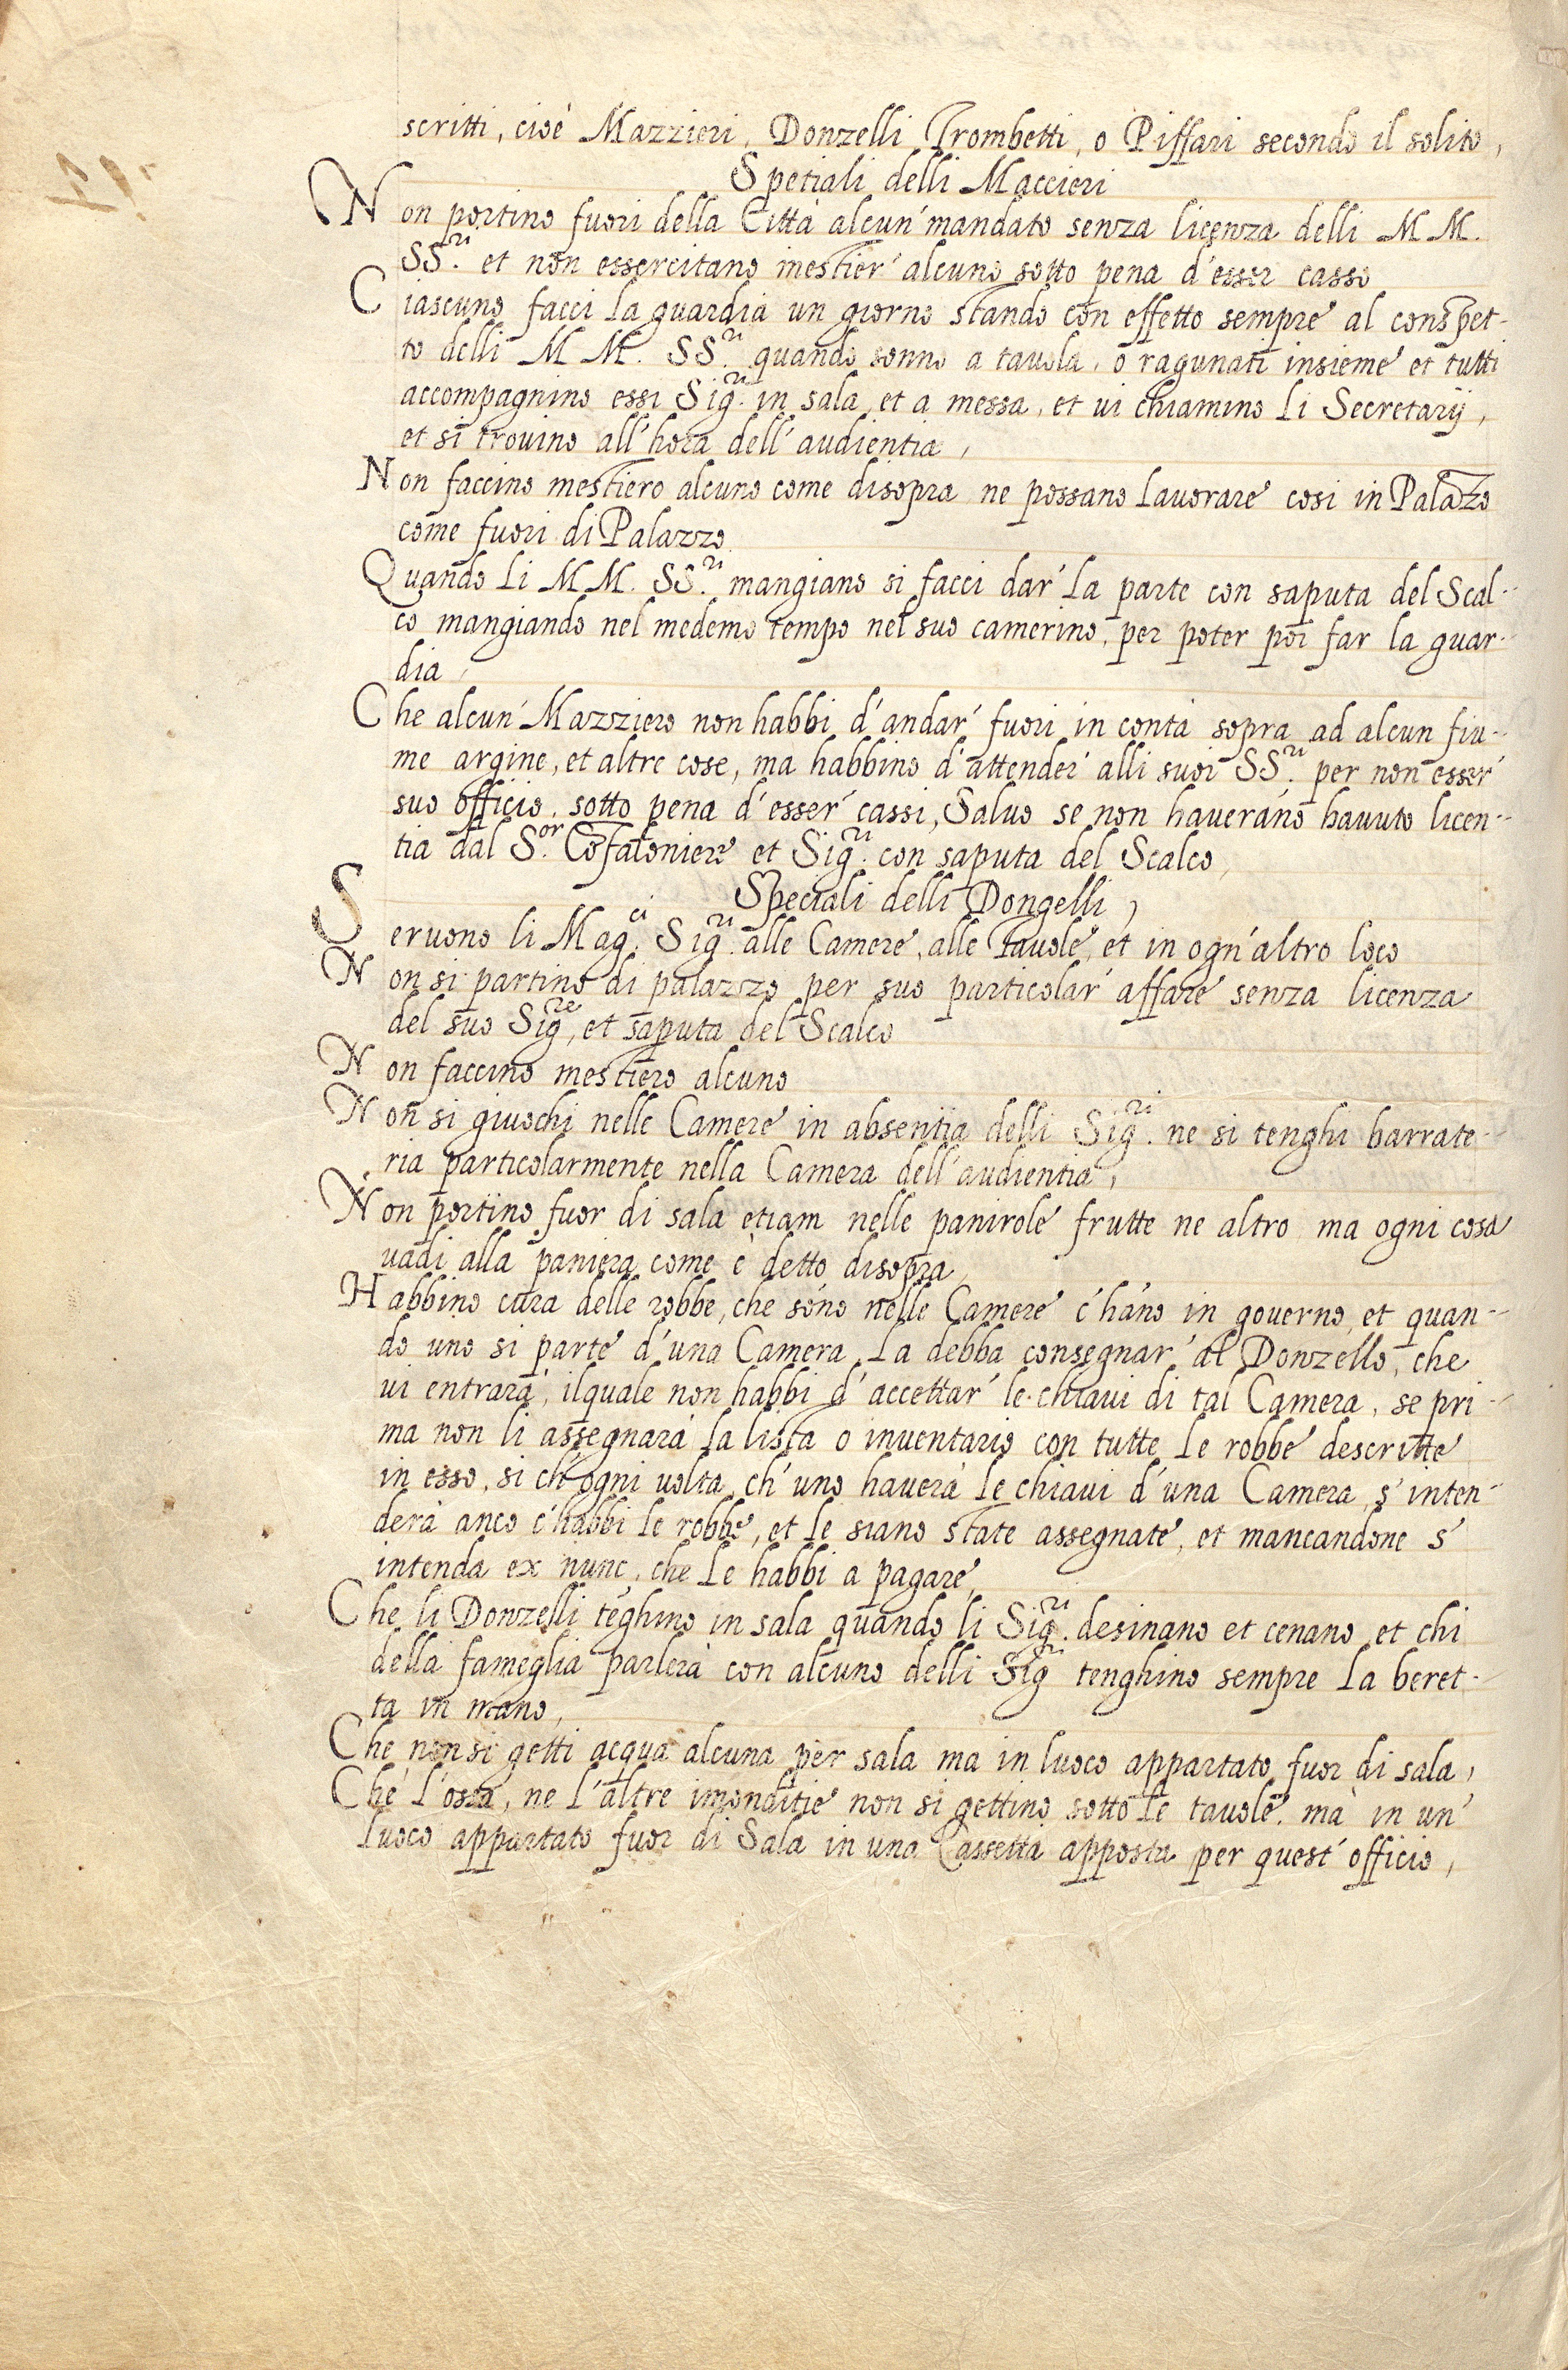 scritti, cioè Mazzieri, Donzelli Trombetti, o Piffari secondo il solito,
Spetiali delli Maccieri
Non portino fuori della Città alcun' mandato senza licenza delli M M.
SS.ri et non essercitano mestier' alcuno sotto pena d'esser casso
Ciascuno facci la guardia un giorno stando con effetto sempre al conspet-
to delli M M. SS.ri quando sonno a tavola, o ragunati insieme et tutti
accompagnino essi Sig.ri in sala et a messa, et ui chiamino li Secretarij,
et si trouino all'hora dell'audientia,
Non faccino mestiero alcuno come disopra ne possano lauorare cosi in Palazo
come fuori di Palazzo
Quando li M M. SS.ri mangiano si facci dar' la parte con saputa del Scal-
co mangiando nel medemo tempo nel suo camerino, per poter poi far la guar-
dia,
Che alcun' Mazziero non habbi d'andar' fuori in contà sopra ad alcun fiu-
me argine, et altre cose, ma habbino d'attender' alli suoi SS.ri per non esser'
suo officio, sotto pena d'esser' cassi, Saluo se non haueráno hauuto licen-
tia dal S.or Cõfaloniere et Sig.ri con saputa del Scalco,
Speciali delli Dongelli,
Seruono li Mag.ci Sig.ri alle Camere, alle Tauole, et in ogn'altro loco
Non si partino di palazzo per suo particolar' affare senza licenza
del suo Sig.re, et saputa del Scalco
Non faccino mestiero alcuno
Non si giuochi nelle Camere in absentia delli Sig.ri ne si tenghi barrate-
ria particolarmente nella Camera dell'audientia,
Non portino fuor di sala etiam nelle panirole frutte ne altro ma ogni cosa
uadi alla paniera come è detto disopra,
Habbino cura delle robbe, che sóno nelle Camere c'háno in gouerno, et quan-
do uno si parte d'una Camera la debba consegnar' al Donzello, che
ui entrara', ilquale non habbi d'accettar' le chiaui di tal Camera, se pri-
ma non li assegnarà la lista o inuentario con tutte le robbe descritte
in esso, si ch'ogni uolta, ch'uno hauerà le chiaui d'una Camera, s'inten-
derà anco c'habbi le robbe, et le siano state assegnate, et mancandone s'
intenda ex nunc, che le habbi a pagare,
Che li Donzelli tẽghino in sala quando li Sig.ri desinano et cenano et chi
della fameglia parlerà con alcuno delli Sig.ri tenghino sempre la beret-
ta in mano,
Che non si getti acqua alcuna per sala ma in luoco appartato fuor di sala,
Che l'ossa, ne l'altre imonditie non si gettino sotto le tauole, ma in un'
luoco appartato fuor di Sala in una Cassetta apposta per quest'officio,